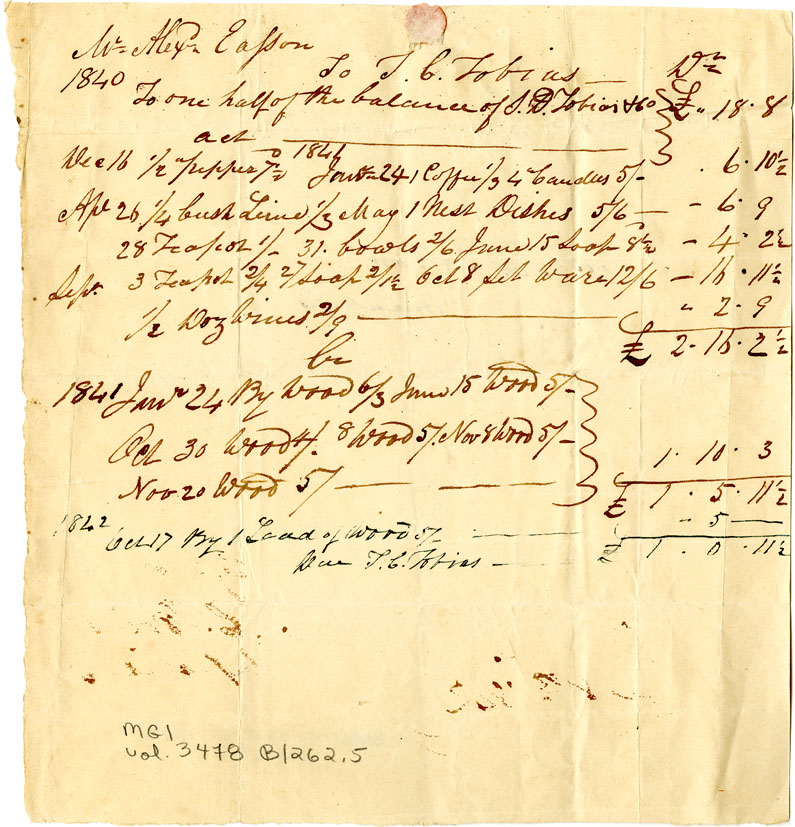 Mr Alexr Easson
1840 To T. C. Tobias — Dr
To one half of the balance of S. D. Tobias £ " 18 . 8
act —
Dec 16 1/2 " Pepper 7 1/2 1841 Janr 24 1 Coffee 1/3 4 " Candles 5/- . 6 . 10 1/2
Apl 26 1/4 bush Lime 1/3 May 1 Nest Dishes 5/6 — - 6 . 9
28 Teapot 1/- 31. bowls 2/6 June 15 Soap 8 1/2 - 4 . 2 1/2
Sepr 3 Teapot 2/4 27 Soap 2/1 1/2 Oct 8 Set Ware 12/6 - 16 . 11 1/2
1/2 Doz Wines 2/9 — " 2 . 9
£ 2 . 16 . 2 1/2
Cr
1841 Janr 24 By Wood 6/3 June 15 Wood 5/-
Oct 30 Wood 4/. 8 Wood 5/. Nov 8 Wood 5/- 1 . 10 . 3
Nov 20 Wood 5/ — — — £ 1 . 5 . 11 1/2
1842 Oct 17 By 1 Load of Wood 5/. — - 5 —
Due T. C. Tobias — £ 1 . 0 . 11 1/2
MG1
vol. 3478 B/262.5